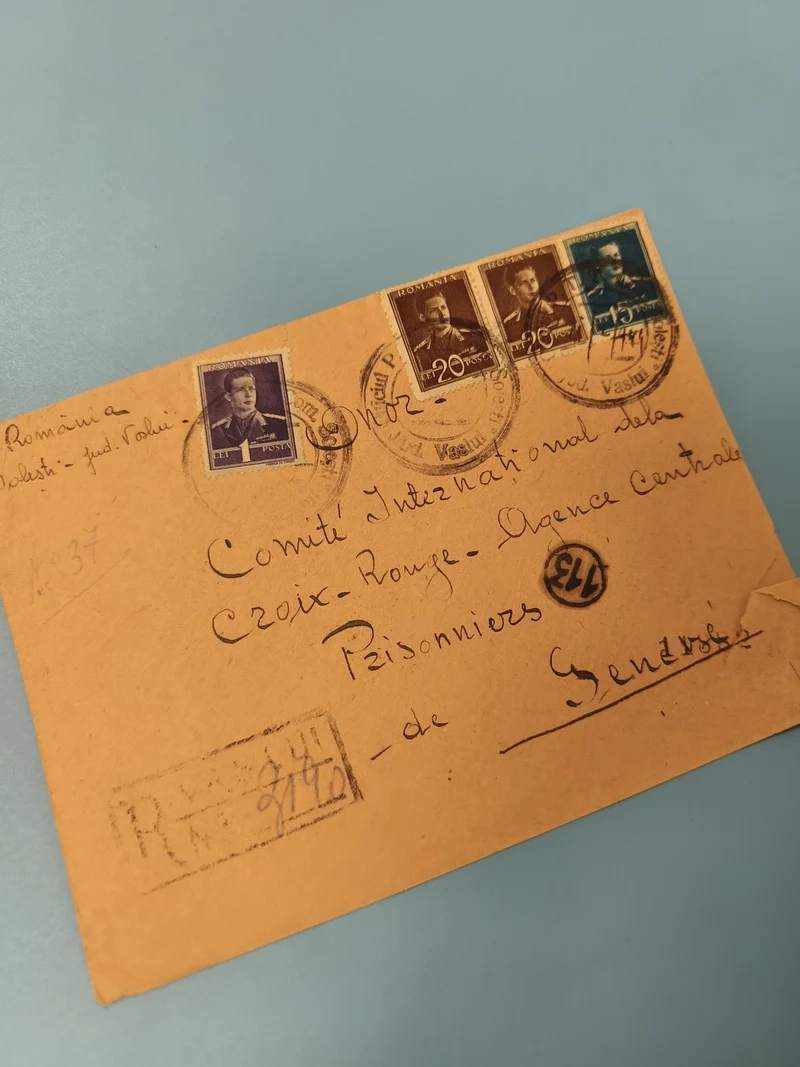 ROMANIA
LEI 20 POSTA
ROMANIA
LEI 20 POSTA
ROMANIA
LEI 15 POSTA
ROMANIA
LEI 1 POSTA
Jud. Vaslui
Jud. Vaslui
România
jud. Vaslui -
No 37
Onor -
Comité Internațional dela
Croix-Rouge - Agence Centrale
Prisonniers
113
- de Genève
R VASLUI
No 9140